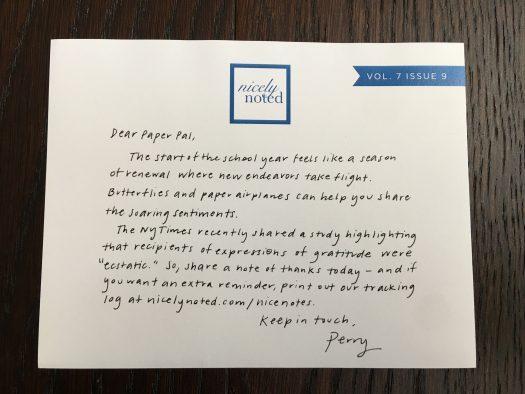 VOL. 7 ISSUE 9
nicely
noted
Dear Paper Pal,
The start of the school year feels like a season
of renewal where new endeavors take flight.
Butterflies and paper airplanes can help you share
the soaring sentiments.
The NyTimes recently shared a study highlighting
that recipients of expressions of gratitude were
"ecstatic." So, share a note of thanks today - and if
you want an extra reminder, print out our tracking
log at nicelynoted.com/nicenotes.
Keep in touch,
Perry